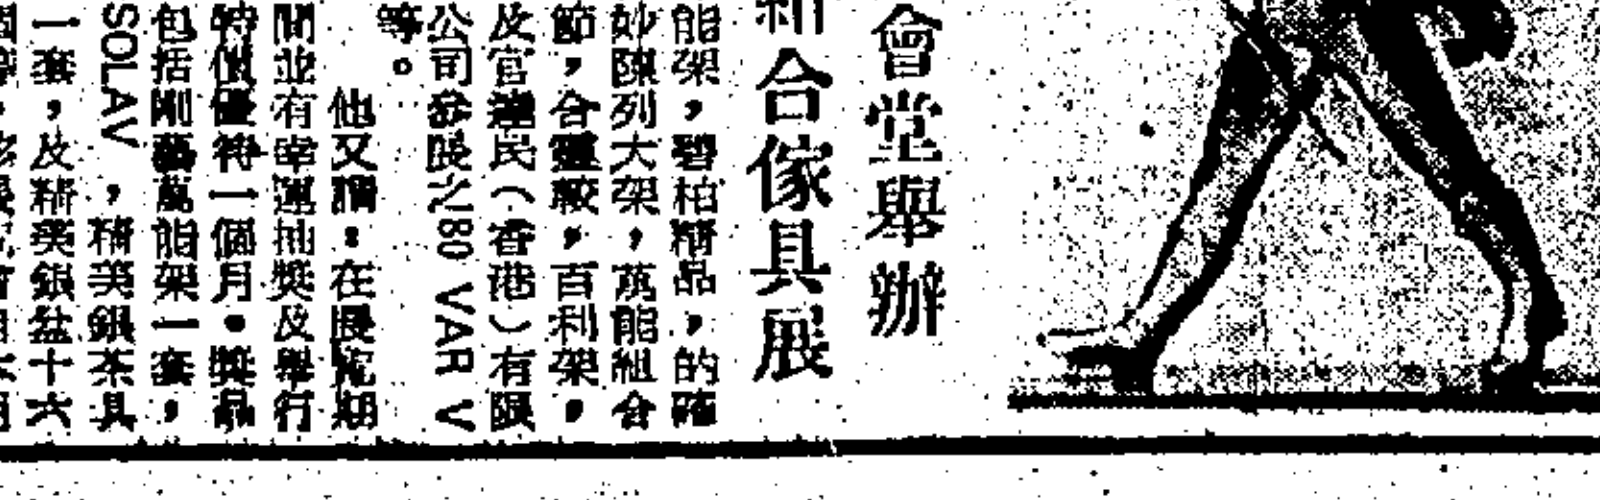 會堂舉辦
合傢具展
能架，碧柏精品，的確
妙陳列大架，萬能組合
節，合靈較，百利架，
及官連民（香港）有限
公司發展之180 VAR V
等。
他又謂：在展覽期
間並有幸運抽獎及舉行
特價優待一個月。獎品
包括剛藝萬能架一套，
SOLAV，精美銀茶具
一套，及精美銀盆十六